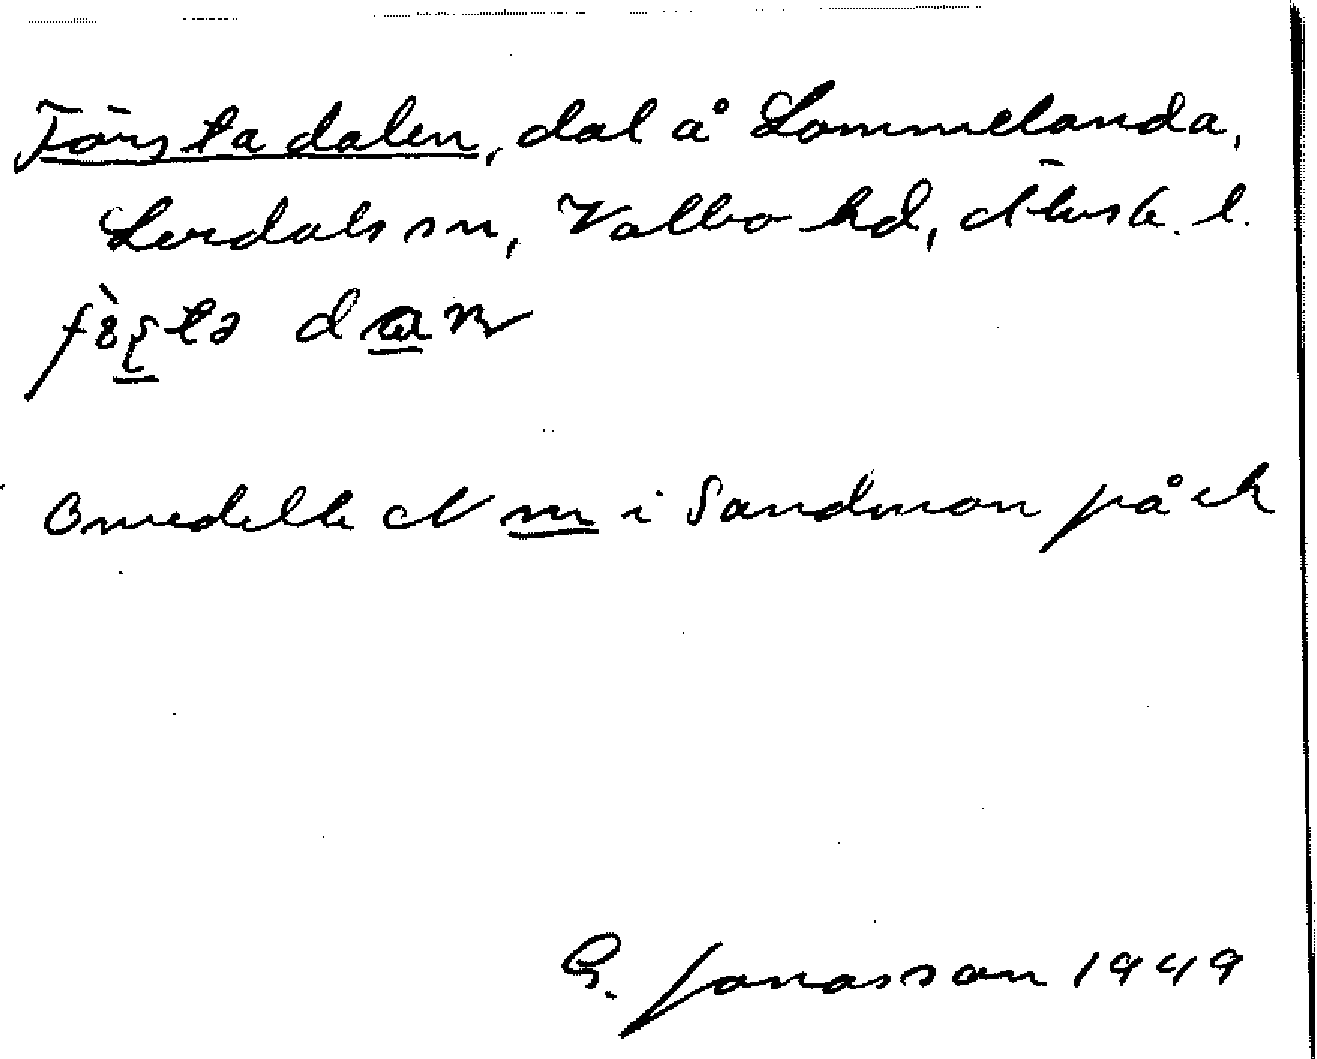 Första dalen, dal å Lommelanda,
Lerdals sn, Valbo hd, Älvsb. l.
Omedelb N m i Sandmon på ek
G. Jonasson 1949